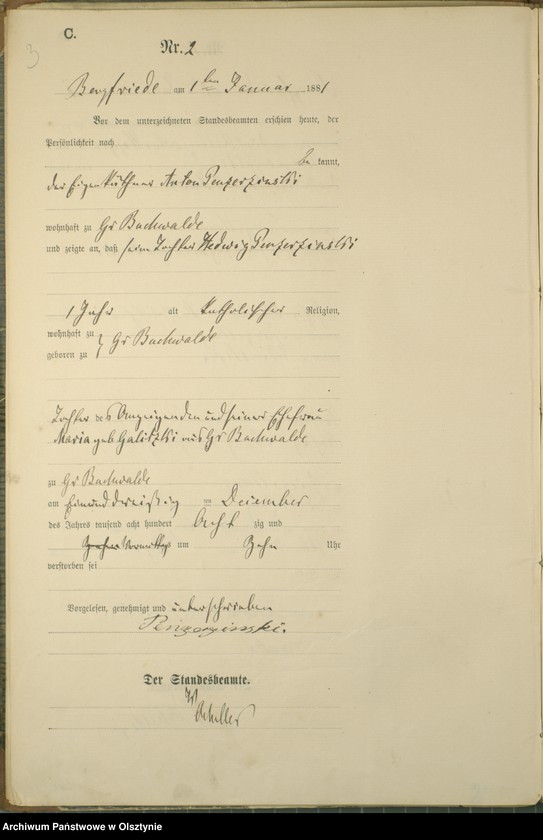 3
C.
Nr. 2
Bergfriede am 1ten Januar 1881
Vor dem unterzeichneten Standesbeamten erschien heute, der
Persönlichkeit nach
be kannt,
der Eigenkäthner Anton
wohnhaft zu Gr Buchwalde
und zeigte an, daß seine Tochter Hedwig
1 Jahr alt katholischer Religion,
wohnhaft zu
geboren zu } Gr Buchwalde
Tochter des Anzeigenden und seiner Ehefrau
Maria geb Galitzki aus Gr Buchwalde
zu Gr Buchwalde
am einunddreißig ten December
des Jahres tausend acht hundert Acht zig und
Vormittags um Zehn Uhr
verstorben sei
Vorgelesen, genehmigt und unterschrieben
Der Standesbeamte.
Archiwum Państwowe w Olsztynie